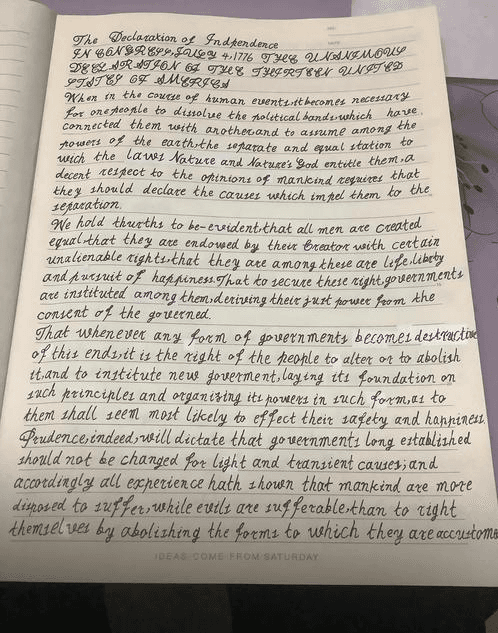 The Declaration of Indpendence
IN CONGRESS, JULY 4, 1776 THE UNANIMOUS
DECLARATION OF THE THIRTEEN UNITED
STATES OF AMERICA
When in the course of human events, it becomes necessary
for one people to dissolve the political bands which have
connected them with another, and to assume among the
powers of the earth, the separate and equal station to
wich the laws Nature and Nature's God entitle them, a
decent respect to the opinions of mankind requires that
they should declare the causes which impel them to the
separation.
We hold thurths to be-evident, that all men are created
equal, that they are endowed by their Creator with certain
unalienable rights, that they are among these are life, liberty
and pursuit of happiness. That to secure these right, governments
are instituted among them, deriving their just power from the
consent of the governed.
That whenever any form of governments becomes destructive
of this ends, it is the right of the people to alter or to abolish
it, and to institute new goverment, laying its foundation on
such principles and organizing its powers in such form, as to
them shall seem most likely to effect their safety and happiness.
Prudence, indeed, will dictate that governments long established
should not be changed for light and transient causes; and
accordingly all experience hath shown that mankind are more
disposed to suffer, while evils are sufferable, than to right
themselves by abolishing the forms to which they are accustome
IDEAS COME FROM SATURDAY